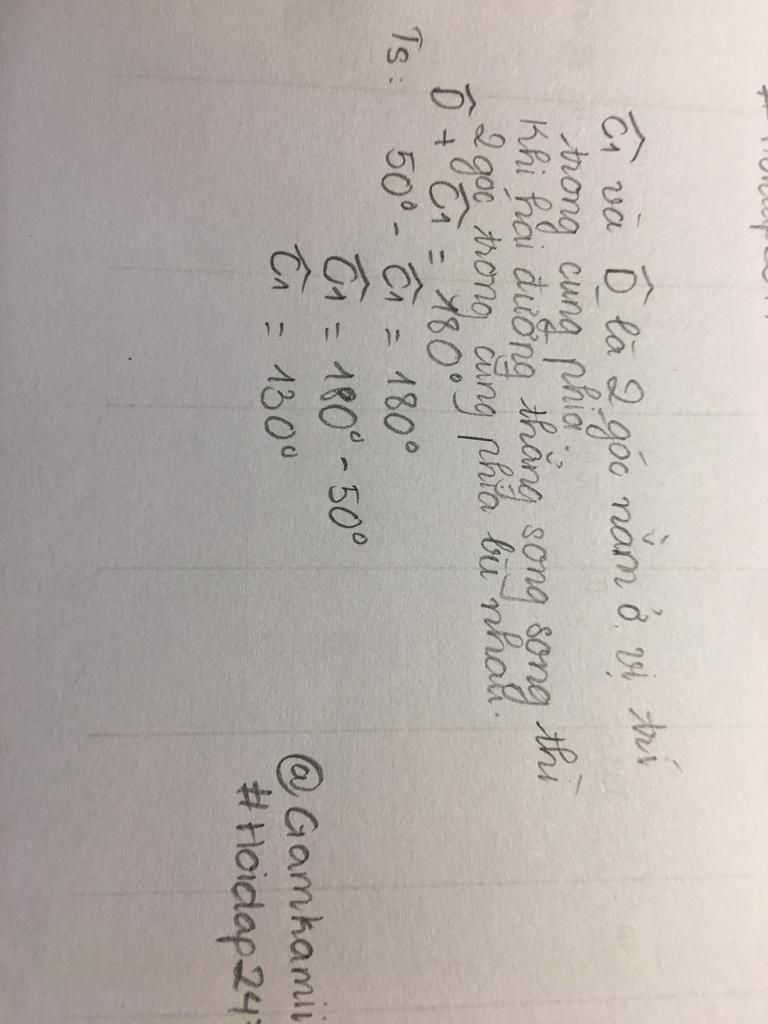 Ĉ1 và D̂ là 2 góc nằm ở vị trí
trong cùng phía.
Khi hai đường thẳng song song thì
2 góc trong cùng phía bù nhau.
D̂ + Ĉ1 = 180°
Ts: 50° - Ĉ1 = 180°
Ĉ1 = 180° - 50°
Ĉ1 = 130°
@Gamkamii
#Hoidap247